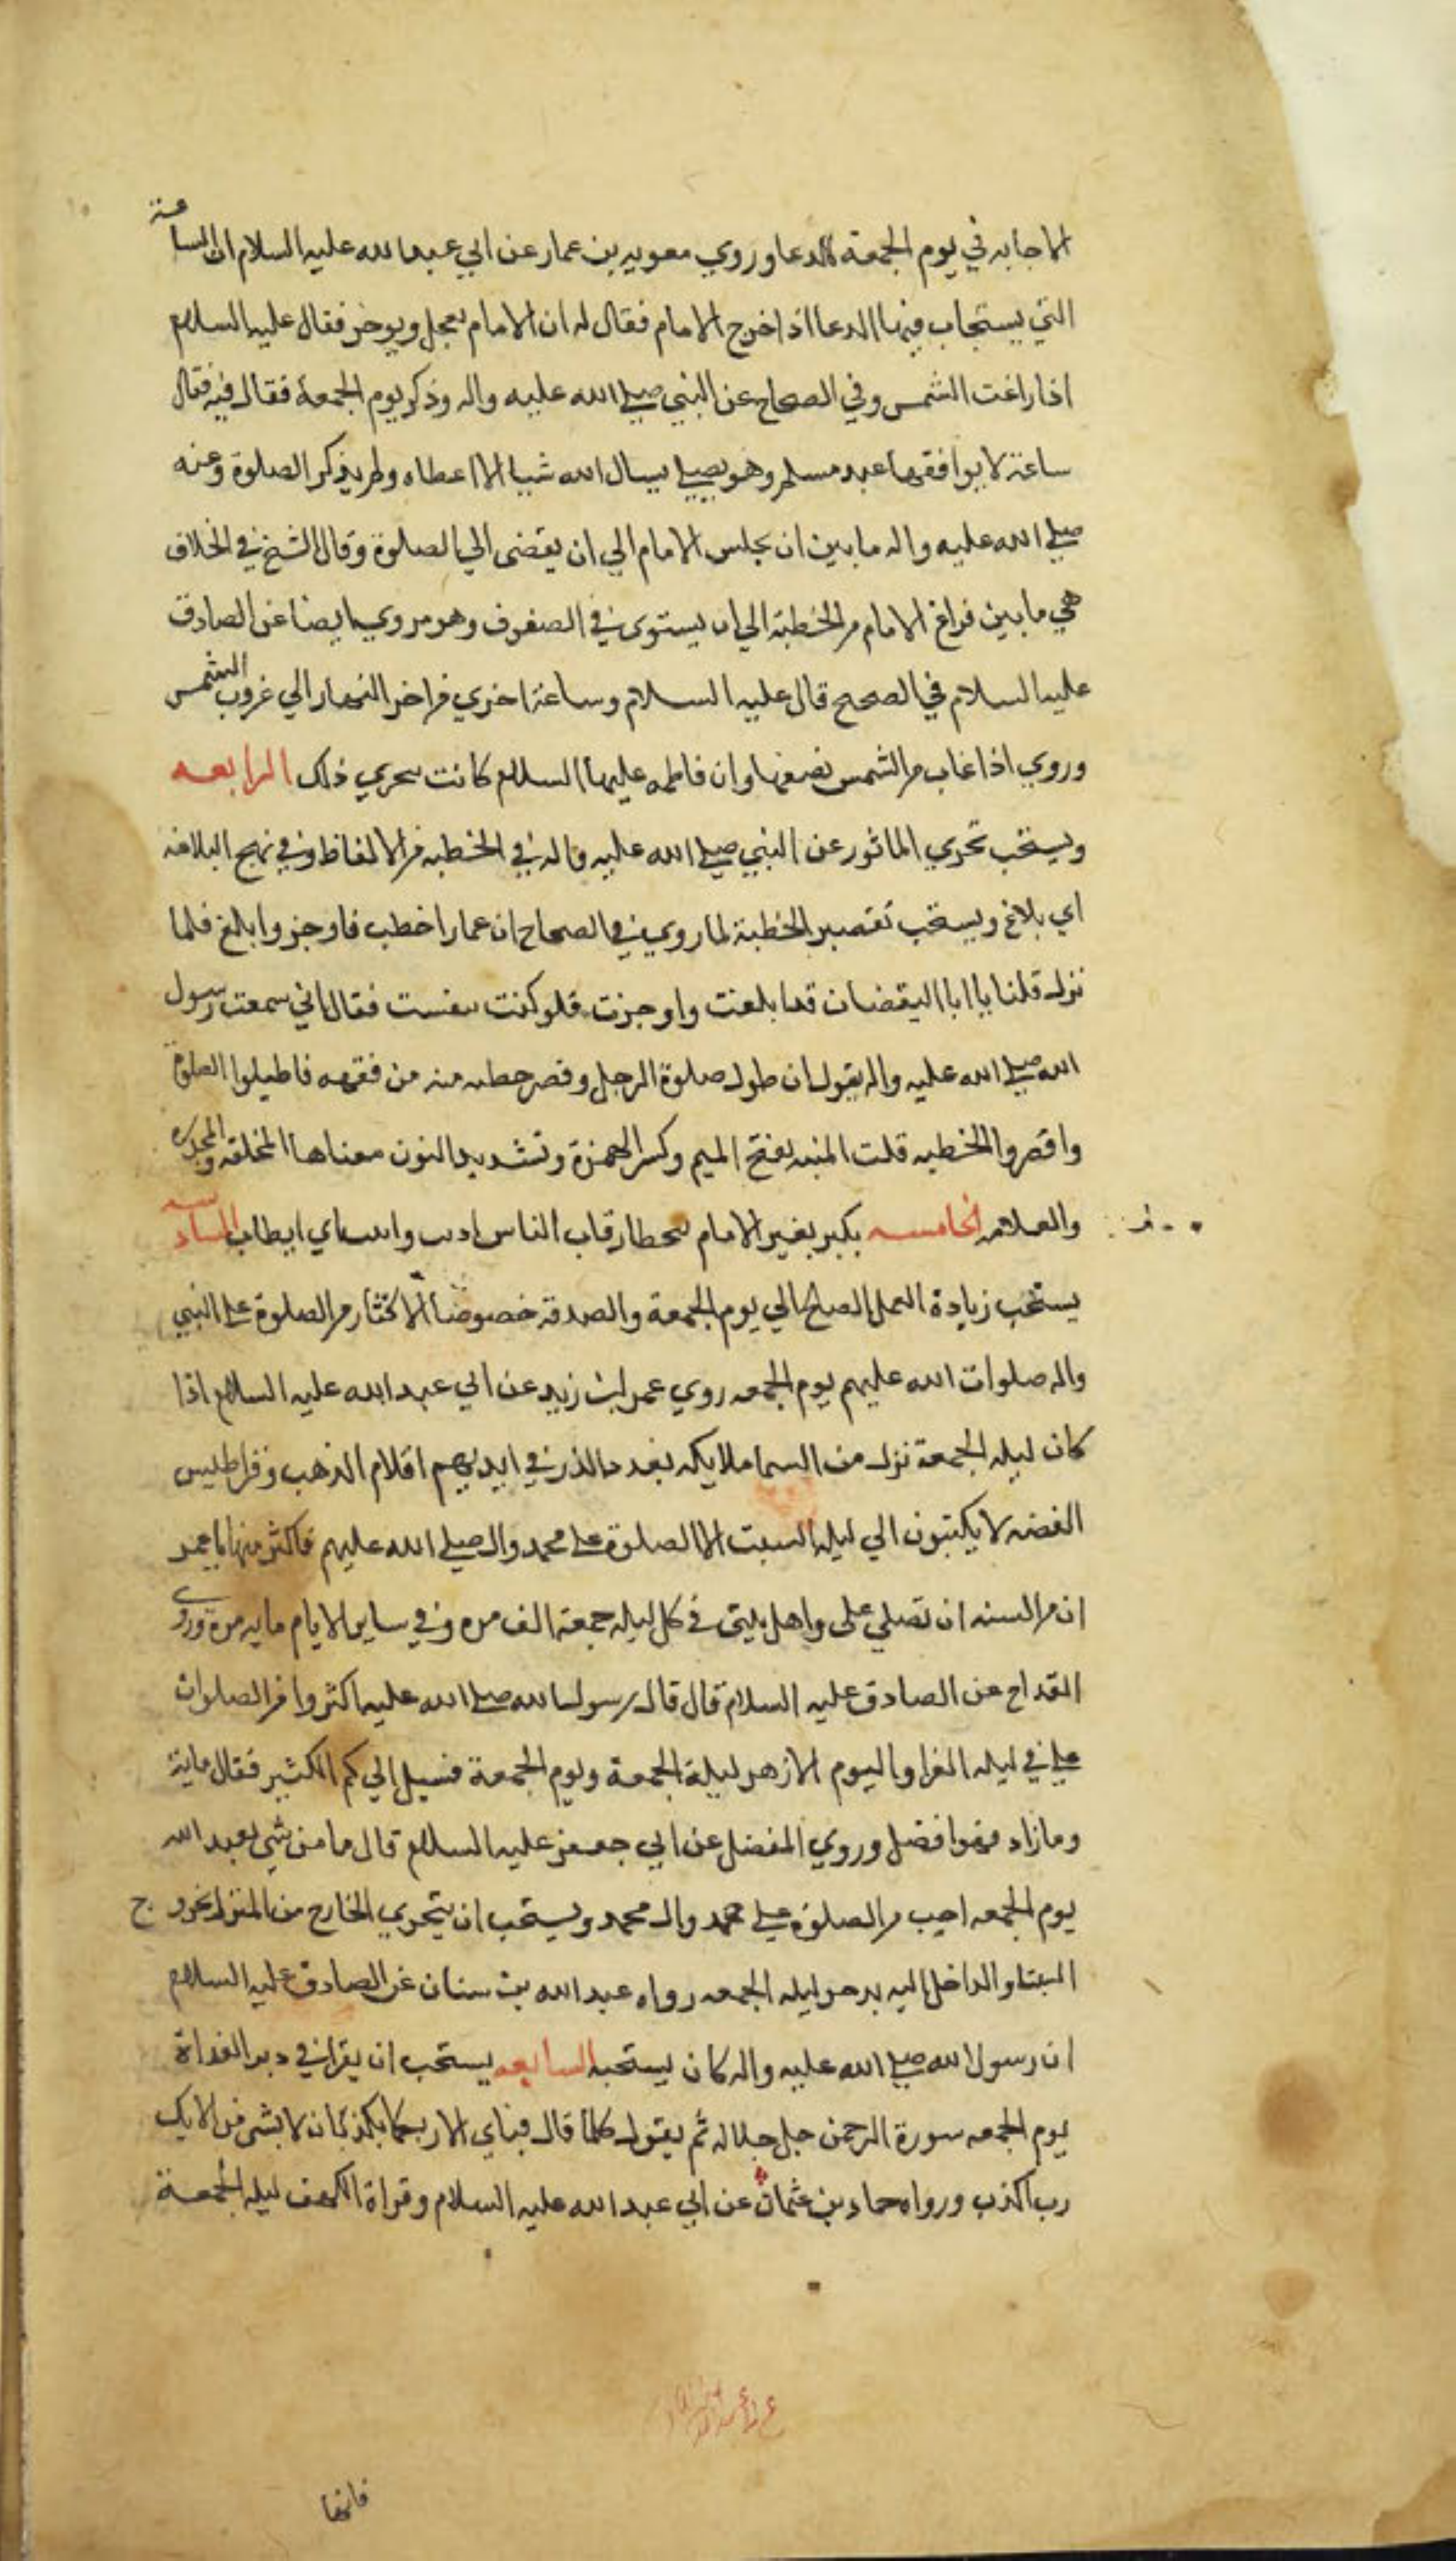 الاجابه في يوم الجمعة للدعا وروي معويه بن عمار عن ابي عبد الله عليه السلام ان الساعة
التي يستجاب فيها الدعا اذا خرج الامام فقال له ان الامام يعجل ويوخر فقال عليه السلام
اذا زاغت الشمس وفي الصحاح عن النبي صلى الله عليه واله وذكر يوم الجمعة فقال فيه فقال
ساعة لا يوافقها عبد مسلم وهو يصلي يسال الله شيا الا اعطاه ولم يذكر الصلوة وعنه
صلى الله عليه واله ما بين ان يجلس الامام الي ان يقضى الي الصلوة وقال الشيخ في الخلاف
هي ما بين فراغ الامام من الخطبة الي ان يستوى في الصفوف وهو مروي ايضا عن الصادق
عليه السلام في الصحيح قال عليه السلام وساعة اخري من اخر النهار الي غروب الشمس
وروي اذا غاب من الشمس نصفها وان فاطمه عليها السلام كانت تحري ذلك الرابعه
ويستحب تحري الماثور عن النبي صلى الله عليه واله في الخطبه من الالفاظ وفي نهج البلاغه
اي بلاغ ويستحب تقصير الخطبة لما روي في الصحاح ان عمارا خطب فاوجز وابلغ فلما
نزل قلنا يا ابا اليقضان قد ابلغت واوجزت فلو كنت تنفست فقال اني سمعت رسول
الله صلى الله عليه واله يقول ان طول صلوة الرجل وقصر خطبه منه من فقهه فاطيلوا الصلوة
واقصروا الخطبه قلت المنه بفتح الميم وكسر الهمزة وتشديد النون معناها المخلقه والمجدره
والعلامه الخامسه يكره لغير الامام تخطا رقاب الناس السادسه
يستحب زيادة العمل الصالح الي يوم الجمعة والصدقة خصوصا الاكثار من الصلوة على النبي
واله صلوات الله عليهم يوم الجمعه روي عمر بن زيد عن ابي عبد الله عليه السلام اذا
كان ليله الجمعة نزل من السما ملايكه بعدد الذر في ايديهم اقلام الذهب وقراطيس
الفضه لا يكتبون الي ليله السبت الا الصلوة على محمد وال صلى الله عليهم فاكثر منها يا عمر
ان من السنه ان تصلي على واهل بيتى في كل ليله جمعة الف مره وفي ساير الايام مايه مرة وروى
القداح عن الصادق عليه السلام قال قال رسول الله صلى الله عليه اكثروا من الصلوات
علي في ليله الغرا واليوم الازهر ليلة الجمعة ويوم الجمعة فسيل الي كم الكثير فقال ماية
وما زاد فهوا فضل وروي المفضل عن ابي جعفر عليه السلام قال ما من شي يعبد الله
يوم الجمعه احب من الصلوة على محمد وال محمد ويستحب ان يتحري الخارج من المنزل الخروج
السبتا والداخل اليه ليله الجمعه رواه عبد الله بن سنان عن الصادق عليه السلام
ان رسول الله صلى الله عليه واله كان يستحبه السابعه يستحب ان يقرا في دبر الغداة
يوم الجمعه سورة الرحمن جل جلاله ثم يقول كلما قال فباي الا ربكما تكذبان لا بشى من الايك
رب اكذب ورواه حماد بن عثمان عن ابي عبد الله عليه السلام وقراة الكهف ليله الجمعة
فانها